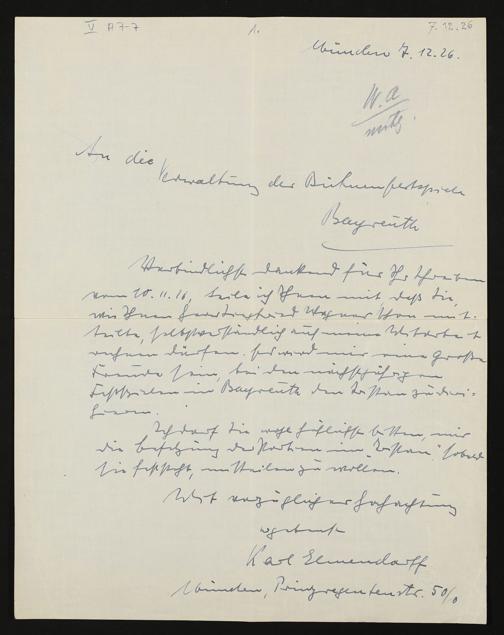 V A 7-7 1. 7.12.26
München 7.12.26.
W.A
An die
Verwaltung der Bühnenfestspiele
Bayreuth
Verbindlichst dankend für Ihr Schreiben
vom 10.11.16, teile ich Ihnen mit, daß Sie,
wie Ihnen Wagner schon mit
teilte, selbstverständlich auf meine Mitarbeit
rechnen dürfen. Es wird mir eine große
Freude sein, bei den nächstjährigen
Festspielen in Bayreuth den Tristan zu diri-
gieren.
Ich darf Sie wohl höflichst bitten, mir
die Besetzung der Partien im "Tristan" sobald
sie feststeht, mitteilen zu wollen.
Mit vorzüglicher Hochachtung
ergebenst
Karl Elmendorff
München, Prinzregentenstr. 50/0